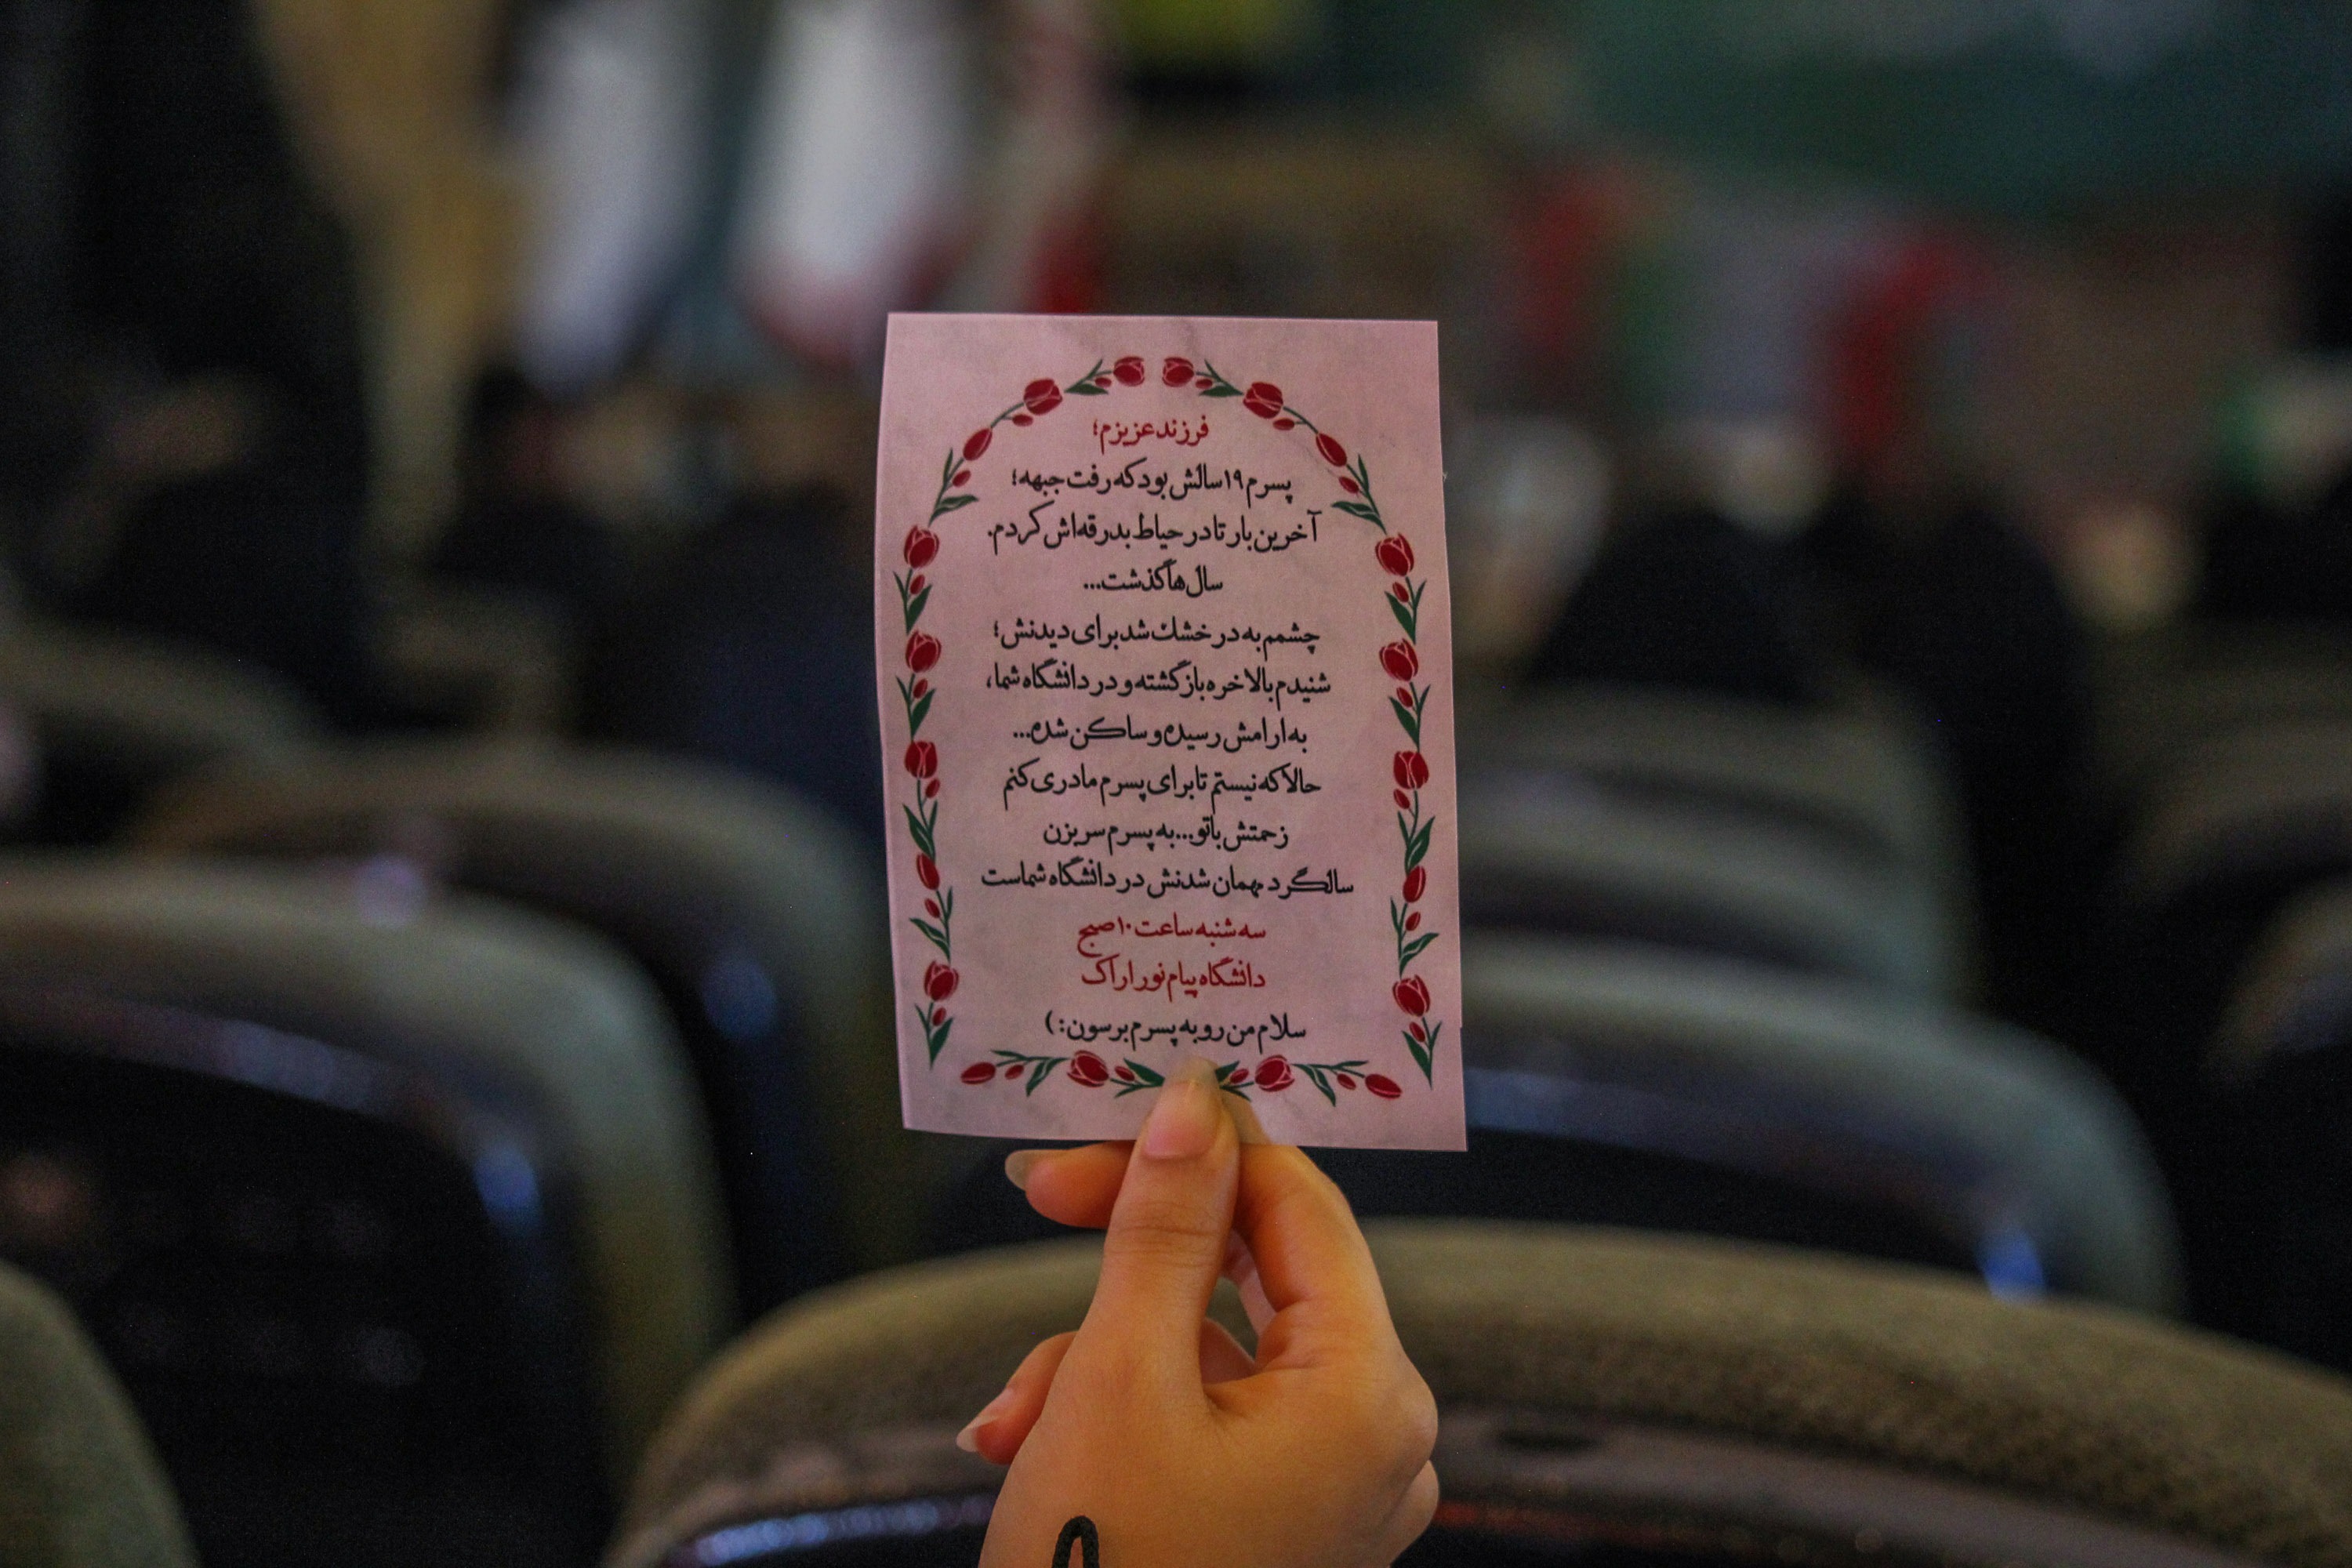 فرزند عزیزم؛
پسرم ۱۹ سالش بود که رفت جبهه؛
آخرین بار تا در حیاط بدرقه‌اش کردم.
سال‌ها گذشت...
چشمم به در خشک شد برای دیدنش؛
شنیدم بالاخره بازگشته و در دانشگاه شما،
به ارامش رسیده و ساکن شده...
حالا که نیستم تا برای پسرم مادری کنم
زحمتش با تو... به پسرم سر بزن
سالگرد مهمان شدنش در دانشگاه شماست
سه شنبه ساعت ۱۰ صبح
دانشگاه پیام نور اراک
سلام من رو به پسرم برسون: )